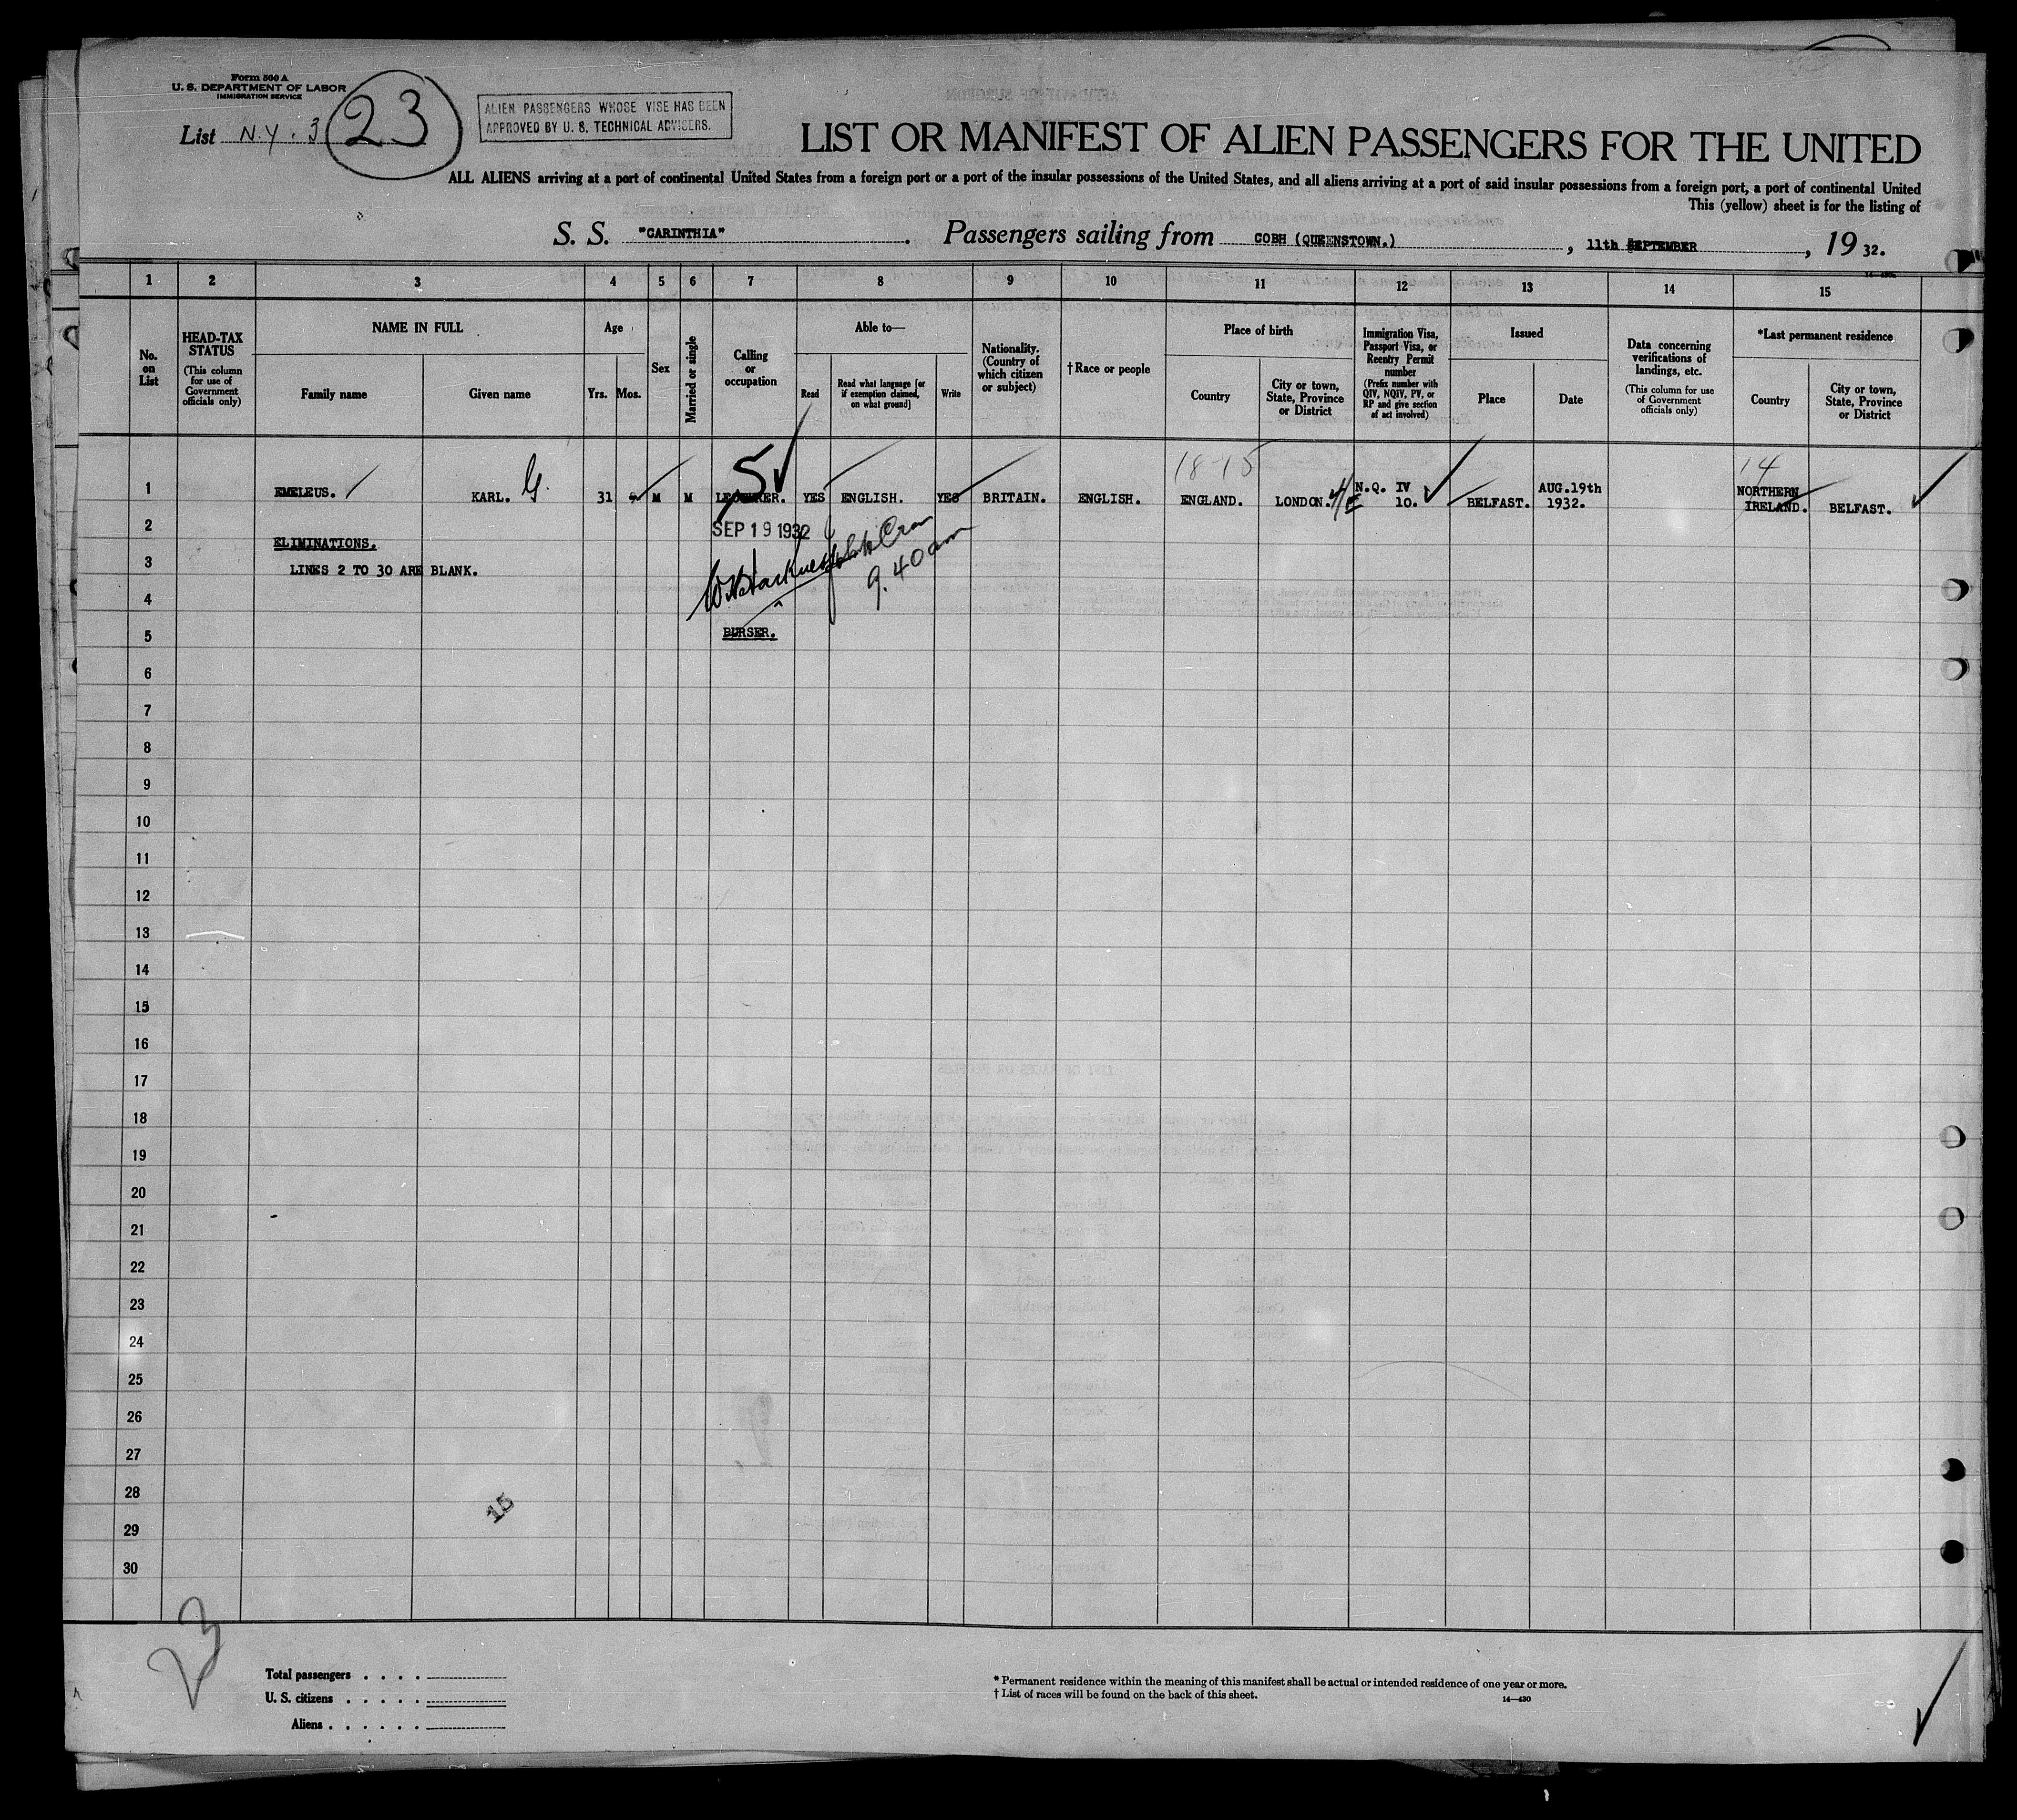 Form 500 A
U. S. DEPARTMENT OF LABOR
IMMIGRATION SERVICE
List N.Y. 3
23
ALIEN PASSENGERS WHOSE VISE HAS BEEN
APPROVED BY U. S. TECHNICAL ADVISERS.
LIST OR MANIFEST OF ALIEN PASSENGERS FOR THE UNITED
ALL ALIENS arriving at a port of continental United States from a foreign port or a port of the insular possessions of the United States, and all aliens arriving at a port of said insular possessions from a foreign port, a port of continental United
This (yellow) sheet is for the listing of
S. S. "CARINTHIA" . Passengers sailing from COBH (QUEENSTOWN.) , 11th SEPTEMBER , 19 32.
1 2 3 4 5 6 7 8 9 10 11 12 13 14 15
No. on List
HEAD-TAX STATUS
(This column for use of Government officials only)
NAME IN FULL
Family name
Given name
Age
Yrs.
Mos.
Sex
Married or single
Calling or occupation
Able to—
Read
Read what language [or if exemption claimed, on what ground]
Write
Nationality. (Country of which citizen or subject)
†Race or people
Place of birth
Country
City or town, State, Province or District
Immigration Visa, Passport Visa, or Reentry Permit number
(Prefix number with QIV, NQIV, PV, or RP and give section of act involved)
Issued
Place
Date
Data concerning verifications of landings, etc.
(This column for use of Government officials only)
*Last permanent residence
Country
City or town, State, Province or District
5
18-15
14
1 EMELEUS. KARL. G. 31 M M LECTURER. YES ENGLISH. YES BRITAIN. ENGLISH. ENGLAND. LONDON. N.Q. IV 10. BELFAST. AUG.19th 1932. NORTHERN IRELAND. BELFAST.
2
SEP 19 1932
ELIMINATIONS.
3 LINES 2 TO 30 ARE BLANK.
9.40am
4
5
PURSER.
6
7
8
9
10
11
12
13
14
15
16
17
18
19
20
21
22
23
24
25
26
27
28
15
29
30
23
Total passengers . . . .
U. S. citizens . . . . .
Aliens . . . . . .
* Permanent residence within the meaning of this manifest shall be actual or intended residence of one year or more.
† List of races will be found on the back of this sheet.
14—430